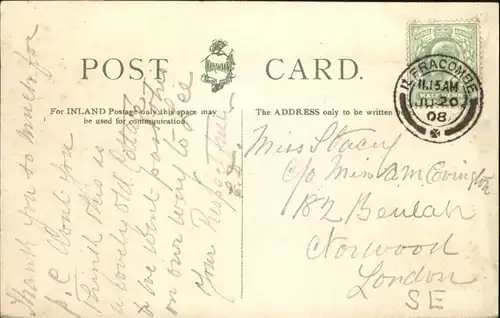 POST CARD.
For INLAND Postage only this space may
be used for communication.
The ADDRESS only to be written
ILFRACOMBE
11.15AM
JU 20
08
Thank you so much for
p.c. about you
this is
a lovely old Cottage
we went past this
on our way to
Your
Miss Stacy
c/o Miss
182 Beulah
Norwood
London
SE